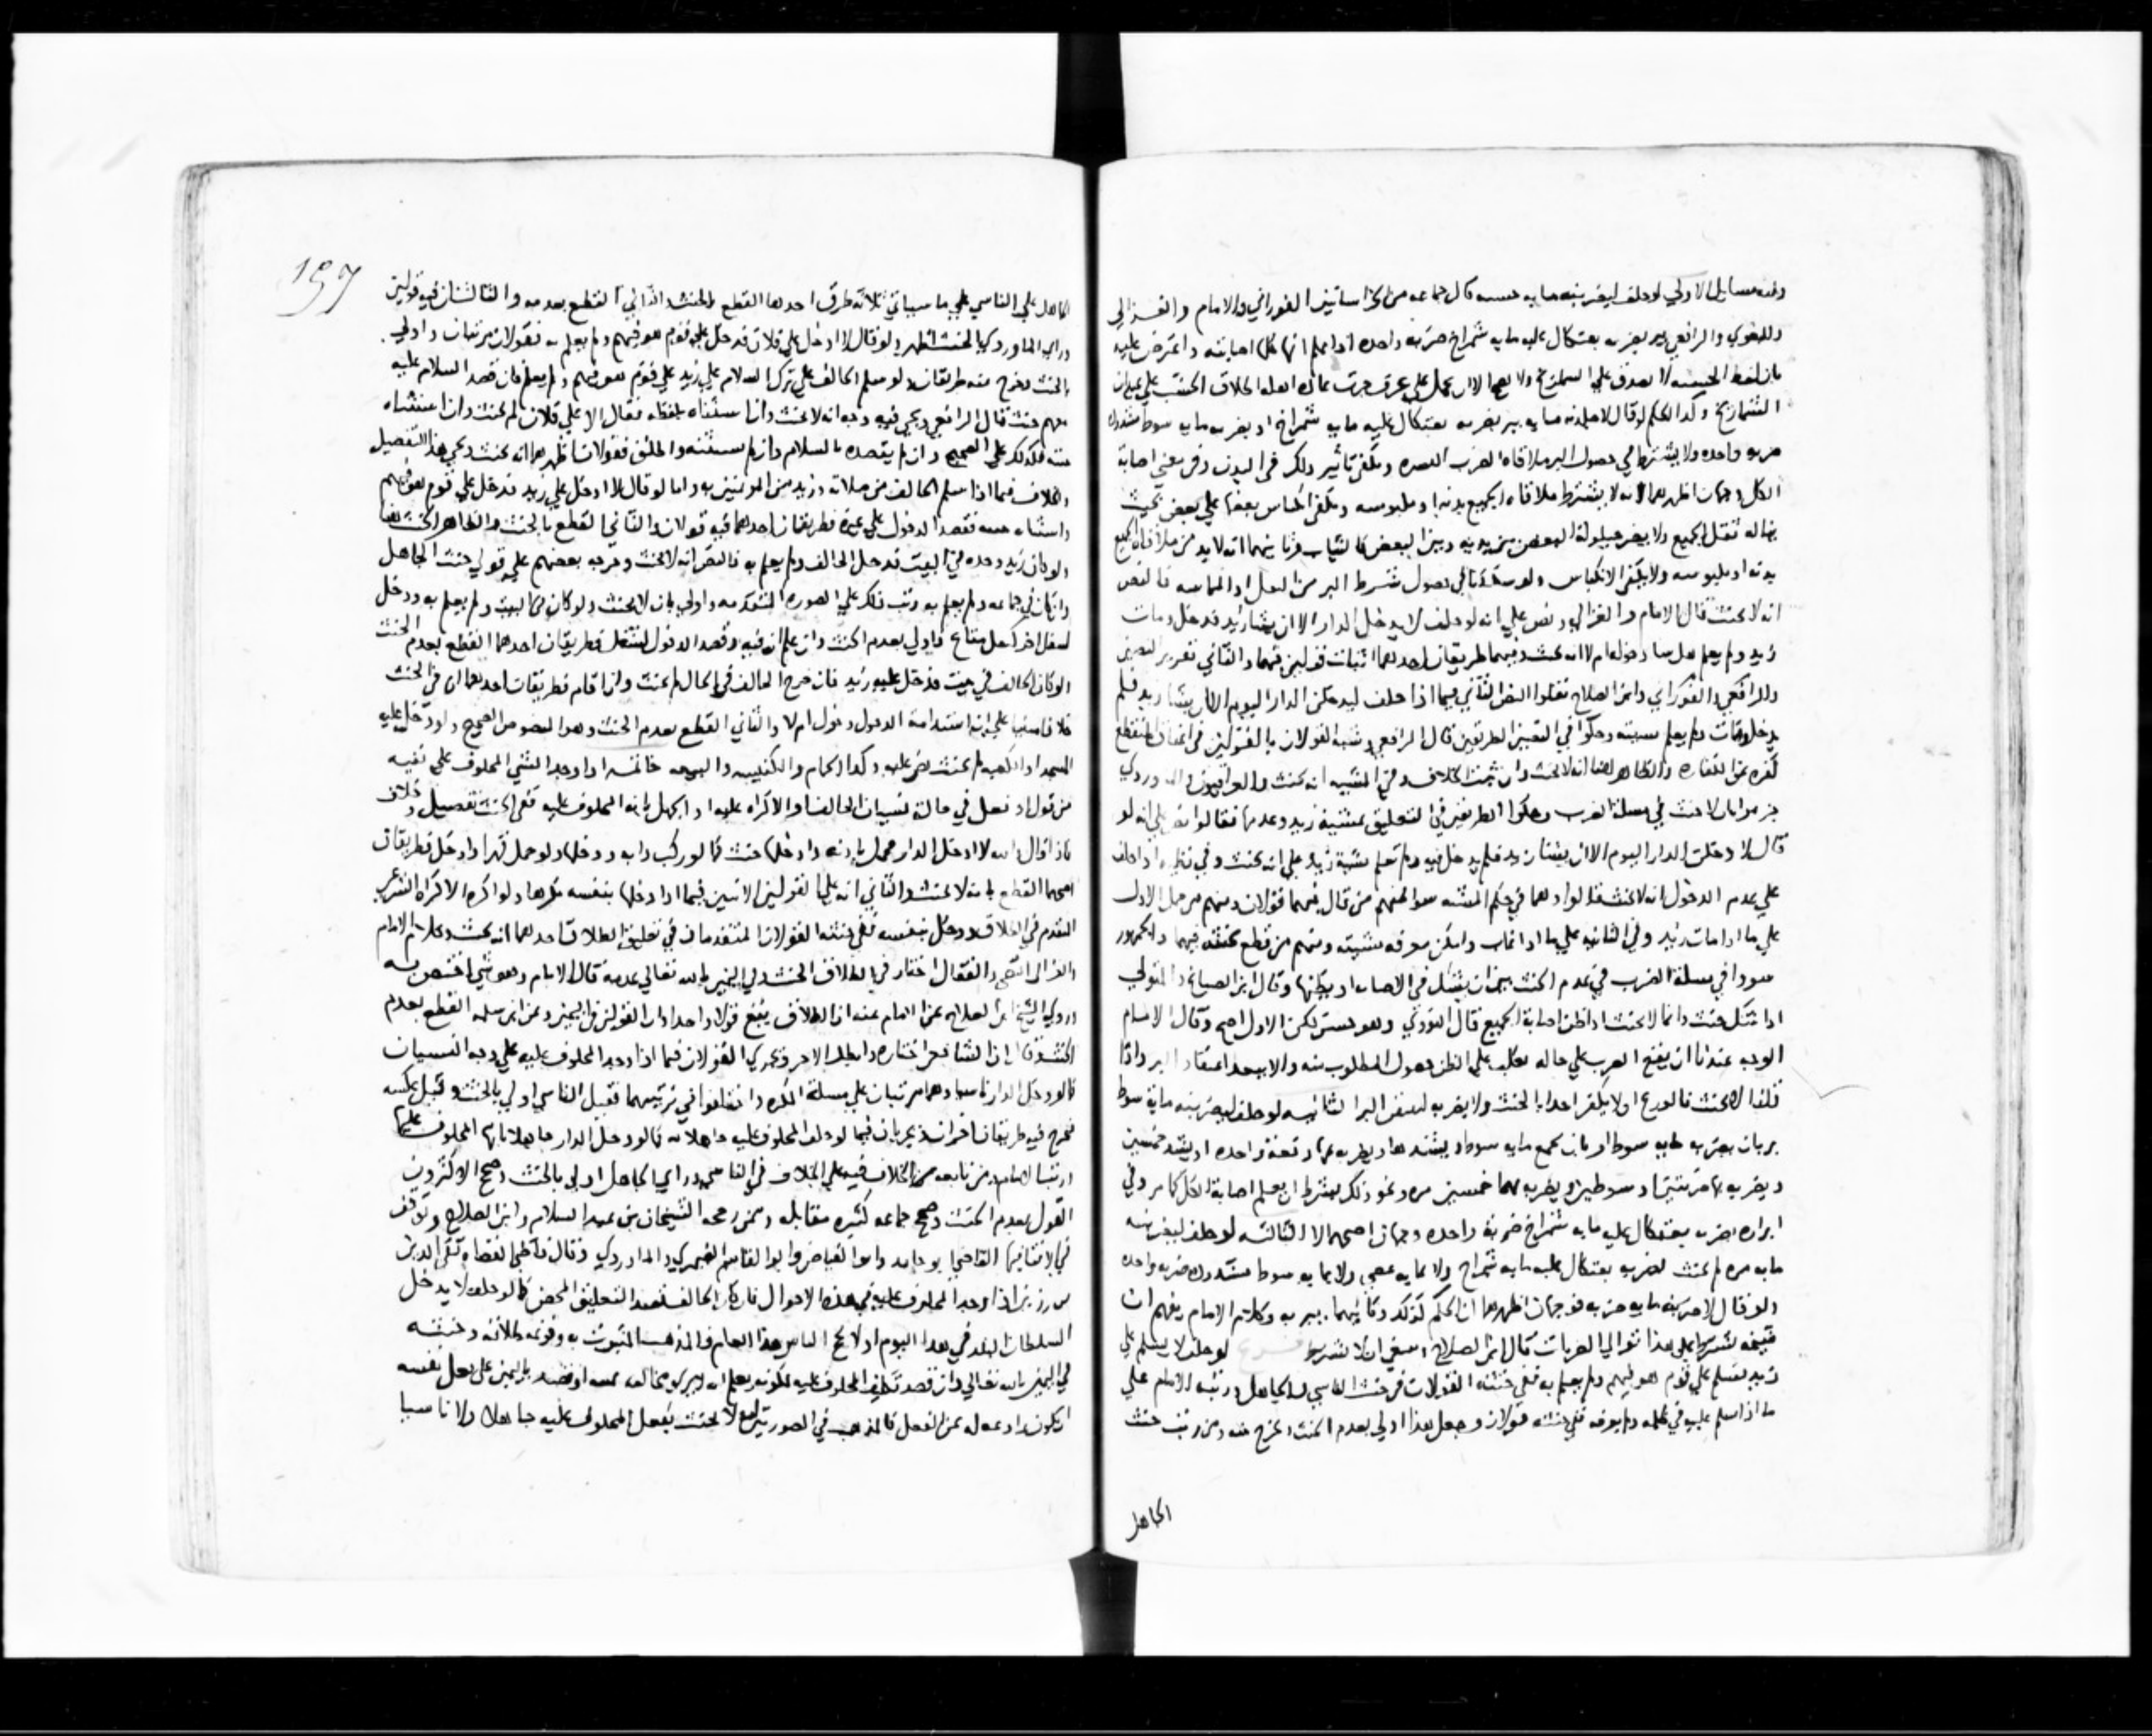 وفيه مسايل الاولي لو حلف ليضربنه مايه خشبه قال جماعه من الخراسانيين الفوراني والامام والغزالي
والبغوي والرافعي يبر بضربه بعثكال عليه مايه شمراخ ضربه واحده اذا علم انها كلها اصابته واعترض عليه
بان لفظ الخشبه لا يصدق علي الشماريخ
الشماريخ وكذا الحكم لو قال لاجلدنه مايه يبر بضربه بعثكال عليه مايه شمراخ او بضربه مايه سوط مشدوده
ضربه واحده ولا يشترط في حصول البر ملاقاه الضرب البشره ويكفي تاثير ذلك في البدن وفي معني اصابة
الكل وجهان اظهرهما انه لا يشترط ملاقاه الجميع بدنه او ملبوسه ويكفي انكباس بعضها علي بعض بحيث
يناله ثقل الجميع ولا يضر حيلولة البعض بين بدنه وبين البعض كالثياب وثانيهما انه لا بد من ملاقاه الجميع
بدنه او ملبوسه ولا يكفي الانكباس ولو شككنا في حصول شرط البر من الثقل او المماسه فالنص
انه لا يحنث قال الامام والغزالي ونص علي انه لو حلف لا يدخل الدار الا ان يشا زيد فدخل ومات
زيد ولم يعلم هل شا دخوله ام لا انه يحنث وفيهما طريقان احدهما اثبات قولين فيهما والثاني تقرير النصين
والرافعي والفوراني وابن الصلاح نقلوا النص الثاني فيما اذا حلف ليدخلن الدار اليوم الا ان يشا زيد فلم
يدخل ومات ولم يعلم مشيته وحكوا في التعبير الطريقين قال الرافعي وشبه القولان بالقولين في اعتاق المنقطع
خبره عن الكفاره والظاهر هنا انه لا يحنث وان ثبت الخلاف وفي المشيه انه يحنث والعراقيون والماوردي
جزموا بان لا حنث في مسلة الضرب وحكوا الطريقين في التعليق بمشية زيد وعدمها فقالوا نص علي انه لو
قال لا دخلت الدار اليوم الا ان يشا زيد فلم يدخل فيه ولم تعلم مشية زيد علي انه يحنث وفي نظيره اذا حلف
علي عدم الدخول انه لا يحنث
علي ما اذا مات زيد وفي الثانيه علي ما اذا غاب وامكن معرفه مشيته ومنهم من قطع بحنثه فيهما والجمهور
سووا في مسلة الضرب في عدم الحنث بين ان يشك في الاصابه او يظنها وقال ابن الصباغ والمتولي
اذا شك حنث وانما لا يحنث اذا ظن اصابة الجميع قال النووي وهو حسن لكن الاول اصح وقال الامام
الوجه عندنا ان يقع الضرب علي حاله يغلب علي الظن حصول المطلوب منه والا يبعد اعتقاد البر واذا
قلنا لا يحنث فالورع ان يكفر احدا بالحنث ولا يضربه ليتيقن البر الثانيه لو حلف ليضربنه ماية سوط
بر بان يضربه مايه سوط او بان يجمع مايه سوط ويشدها ويضربه بها دفعة واحده او يشد خمسين
ويضربه بها مرتين او سوطين ويضربه بهما خمسين مره ونحو ذلك بشرط ان يعلم اصابة الكل كما مر وفي
ابراره بضربه بعثكال عليه مايه شمراخ ضربة واحده وجهان اصحهما لا الثالثه لو حلف ليضربنه
مايه مره لم يحنث لضربه بعثكال عليه مايه شمراخ ولا بمايه عصي ولا بمايه سوط مشدوده ضربه واحده
ولو قال لاضربنه مايه ضربه فوجهان اظهرهما ان الحكم كذلك وثانيهما يبر به وكلام الامام يفهم ان
قضيته لشرط علي هذا توالي الضربات قال ابن الصلاح ينبغي ان لا تشترط فرع لو حلف لا يسلم علي
زيد فسلم علي قوم هو فيهم ولم يعلم به ففي حنثه القولان في حنث الناسي والجاهل ورتبه الامام علي
ما اذا سلم عليه في ظلمه ولم يعرفه ففي حنثه قولان وجعل هذا اولي بعدم الحنث فخرج منه ومن رتب حنث
الجاهل
197
الجاهل علي الناسي علي ما سياتي ثلاثة طرق احدها القطع بالحنث والثاني القطع بعدمه والثالث ان فيه قولين
وراي الماوردي الحنث اظهر ولو قال لا ادخل علي فلان فدخل علي قوم هو فيهم ولم يعلم به فقولان مرتبان واولي
بالحنث فخرج منه طريقان ولو سلم الحالف علي ترك السلام علي زيد علي قوم هو فيهم ولم يعلم فان قصد السلام عليه
معهم حنث قال الرافعي ويجي فيه وجه انه لا يحنث وان استثناه بلفظه فقال الا علي فلان لم يحنث وان استثناه
بنيته فكذلك علي الصحيح وان لم يقصده بالسلام ولم يستثنه واطلق فقولان اظهرهما انه يحنث ويجي هذا التفصيل
والخلاف فيما اذا سلم الحالف من صلاته وزيد من المؤتمين به واما لو قال لا ادخل علي زيد فدخل علي قوم هو فيهم
واستثناه بنيته فقصد الدخول علي غيره فطريقان احدهما فيه قولان والثاني القطع بالحنث والظاهر الحنث هنا
ولو كان زيد وحده في البيت فدخل الحالف ولم يعلم به فالنص انه لا يحنث وخرجه بعضهم علي قولي حنث الجاهل
وان كان في جماعه ولم يعلم به رتب ذلك علي الصوره المتقدمه واولي بان لا يحنث ولو كان في البيت ولم يعلم به ودخل
لشغل اخر كنقل متاع فاولي بعدم الحنث وان علم انه فيه وقصد الدخول للشغل فطريقان احدهما القطع بعدم الحنث
ولو كان الحالف في بيت فدخل عليه زيد فان خرج الحالف في الحال لم يحنث وان اقام فطريقان احدهما ان في الحنث
خلافا مبنيا علي ان استدامة الدخول دخول ام لا والثاني القطع بعدم الحنث وهو المنصوص الصحيح ولو دخل عليه
المسجد او الكعبه لم يحنث نص عليه وكذا الحمام والكنيسه والبيعه خاتمه اذا وجد الشي المحلوف علي نفيه
من قول او فعل في حالة نسيان الحالف او الاكراه عليه او الجهل بانه المحلوف عليه ففي الحنث تفصيل وخلاف
فاذا قال والله لا ادخل الدار فحمل باذنه وادخلها حنث كما لو ركب دابه ودخلها ولو حمل قهرا وادخل فطريقان
اصحهما القطع بانه لا يحنث والثاني انه علي القولين الاتيين فيما اذا دخلها بنفسه مكرها ولو اكره الاكراه الشرعي
المتقدم في الطلاق ودخل بنفسه ففي حنثه القولان المتقدمان في تعليق الطلاق احدهما انه يحنث وكلام الامام
والغزالي والقفال اختار في الطلاق الحنث وفي اليمين بالله تعالي عدمه قال الامام وهو شي اختص به
وروي الشيخ ابن الصلاح عن الامام عنه ان الطلاق يقع قولا واحدا وان القولين في اليمين وعن ابن سلمه القطع بعدم
الحنث وقال ان الشافعي اختاره وابطل الاخر ويجري القولان فيما اذا وجد المحلوف عليه علي وجه النسيان
كما لو دخل الدار ناسيا وهما مرتبان علي مسلة المكره واختلفوا في ترتيبهما فقيل الناسي اولي بالحنث وقيل عكسه
فخرج فيه طريقان اخران ويجريان فيما لو دخل المحلوف عليه جاهلا به كما لو دخل الدار جاهلا بانها المحلوف عليها
ورتب الامام ومن تابعه من الخلاف فيه علي الخلاف في الناسي وراي الجاهل اولي بالحنث وصحح الاكثرون
القول بعدم الحنث وصحح جماعه كثيره مقابله وممن رجحه الشيخان بن عبد السلام وابن الصلاح وتوقف
في الافتا فيها القاضي ابو حامد وابو الفياض وابو القاسم الصيمري والماوردي وقال قاضي القضاه تقي الدين
بن رزين اذا وجد المحلوف عليه في هذه الاحوال فان كان الحالف قصد التعليق المحض كما لو حلف لا يدخل
السلطان البلد في هذا اليوم او لا يحج الناس هذا العام فالمذهب الثبوت به وقوع طلاقه وحنثه
في اليمين بالله تعالي وان قصد تكليف المحلوف عليه لكونه يعلم انه لا يري مخالفته او قصد باليمين علي فعل نفسه
ان يكون رادعه له عن الفعل فالمذهب في الصورتين انه لا يحنث بفعل المحلوف عليه جاهلا ولا ناسيا